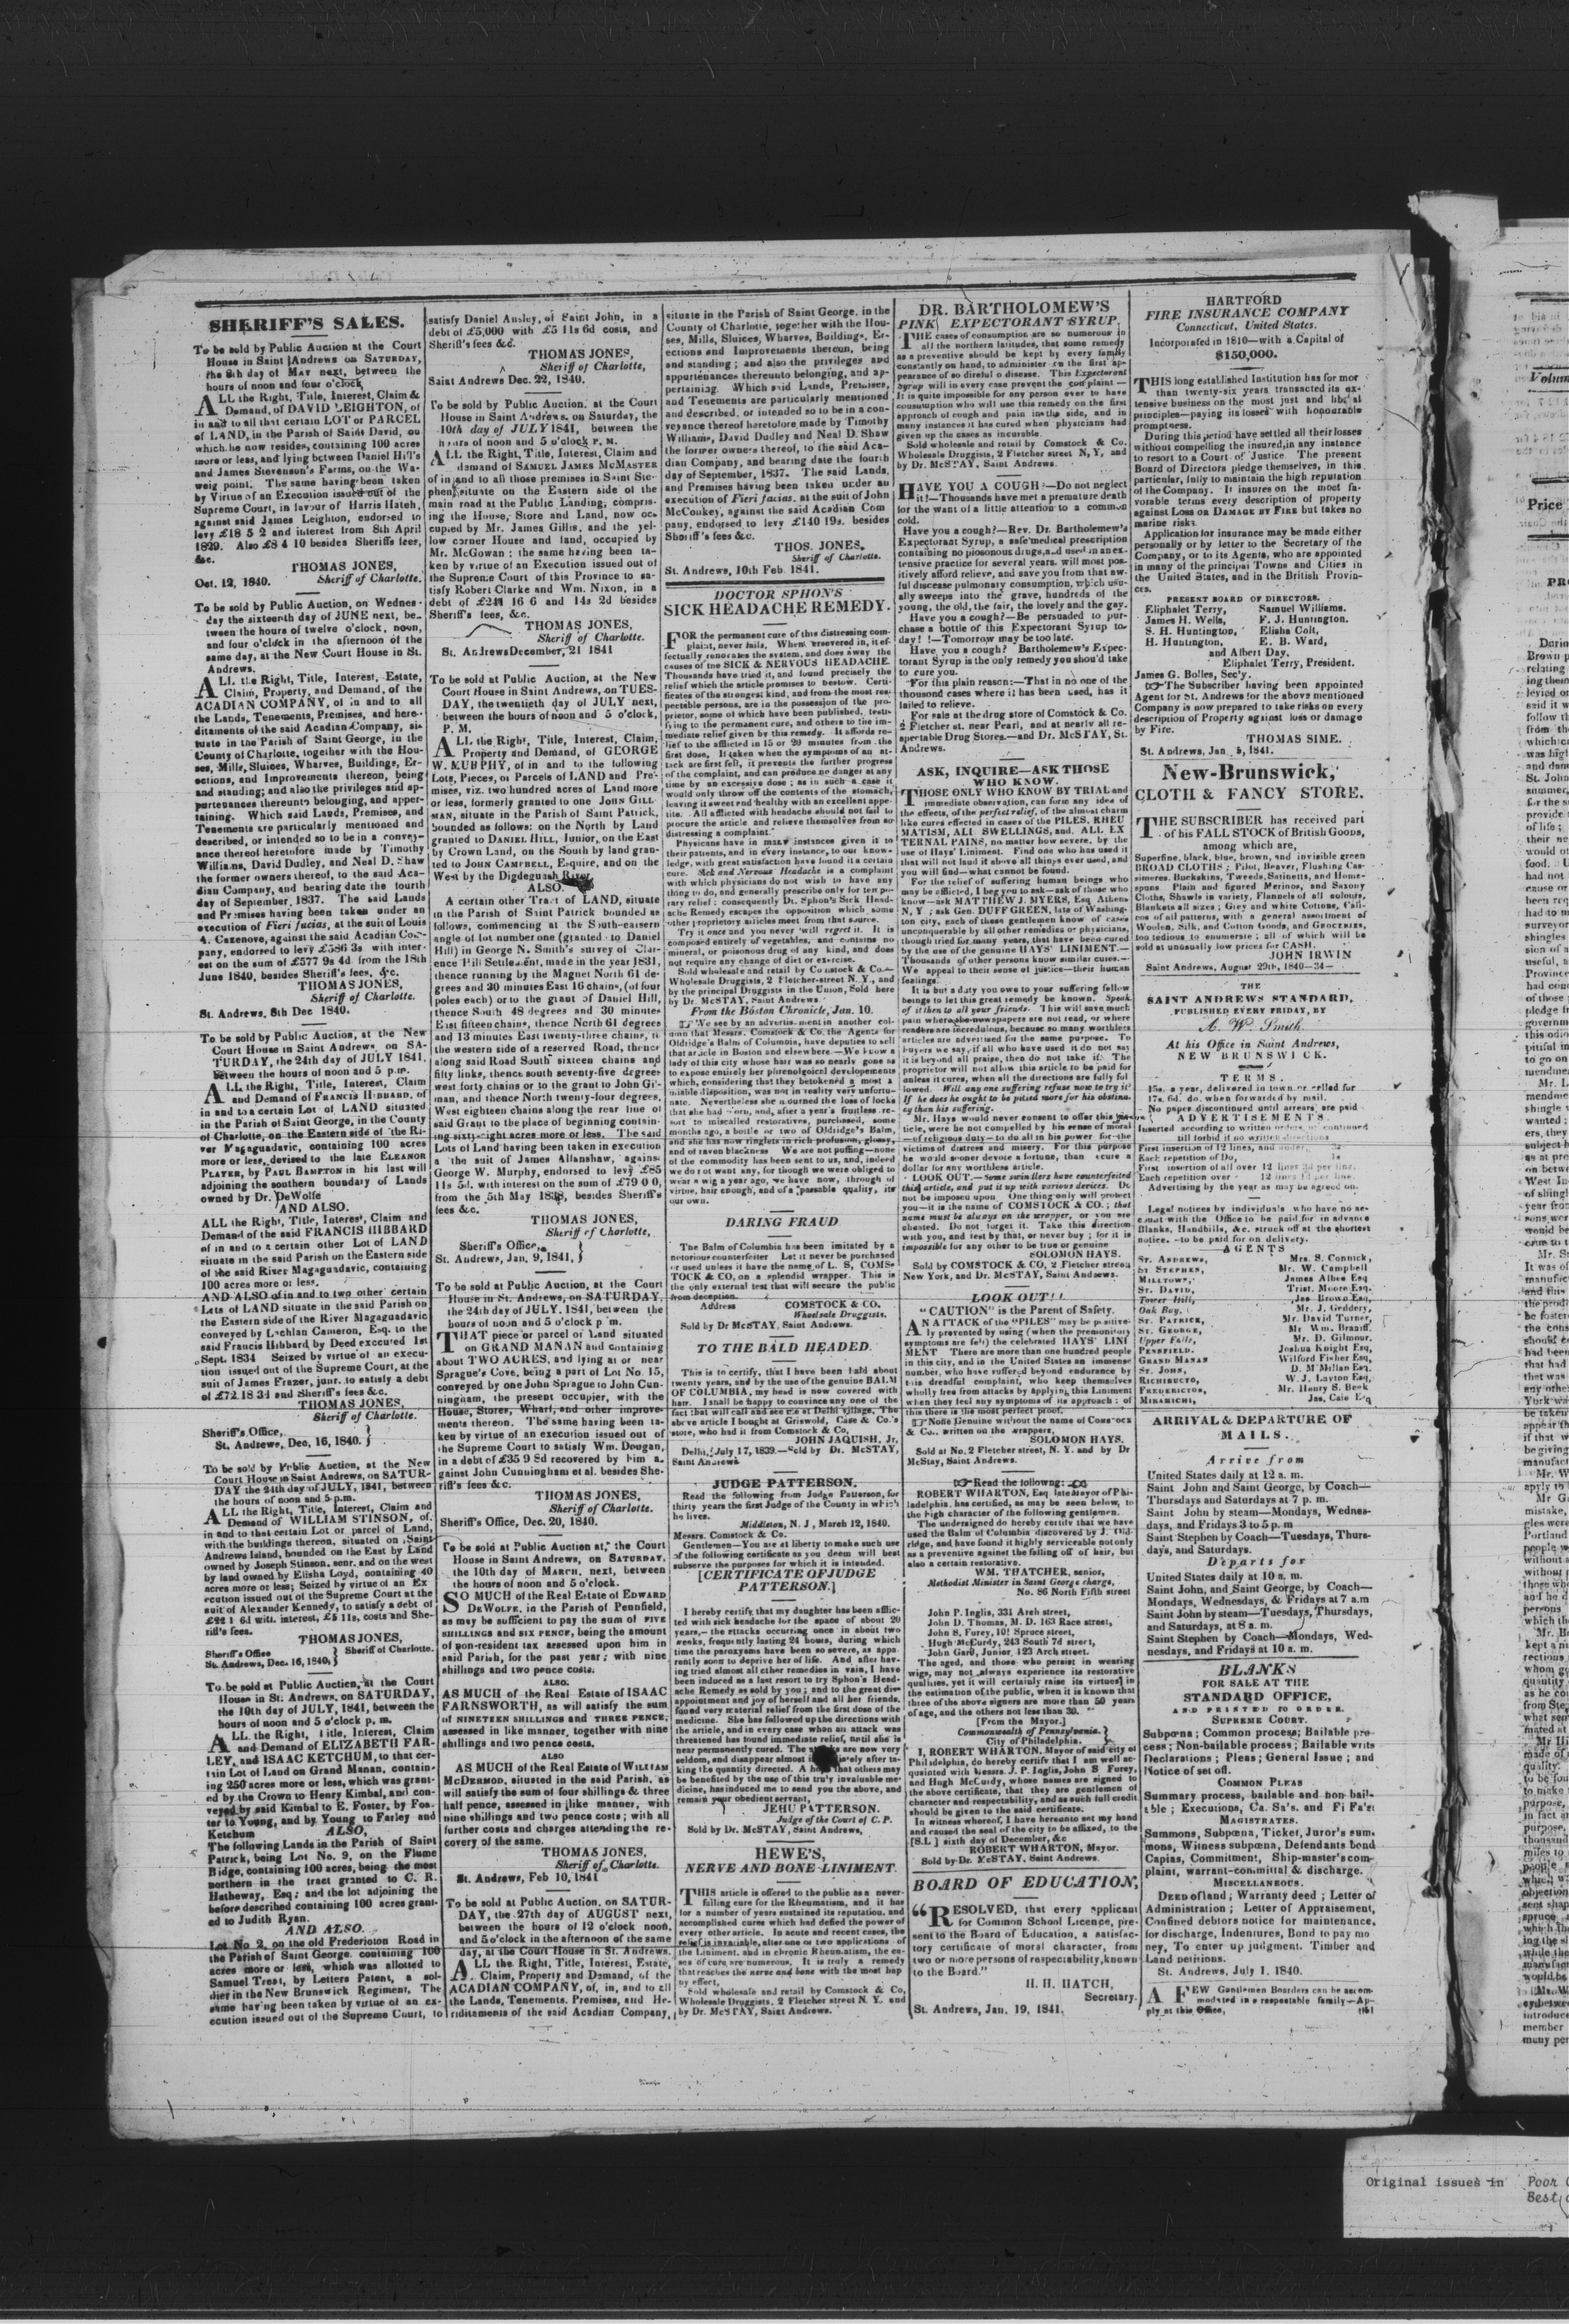 SHERIFF'S SALES.
To be sold by Public Auction at the Court
House in Saint Andrews on SATURDAY,
the 8th day of MAY next, between the
hours of noon and four o'clock
ALL the Right, Title, Interest, Claim &
Demand, of DAVID LEIGHTON, of
in and to all that certain LOT or PARCEL
of LAND, in the Parish of Saint David, on
which he now resides, containing 100 acres
more or less, and lying between Daniel Hill's
and James Stevenson's Farms, on the Wa-
weig point. The same having been taken
by Virtue of an Execution issued out of the
Supreme Court, in favour of Harris Hatch,
against said James Leighton, endorsed to
levy £18 5 2 and interest from 8th April
1829. Also £8 4 10 besides Sheriffs fees,
&c.
THOMAS JONES,
Oct. 12, 1840. Sheriff of Charlotte.
To be sold by Public Auction, on Wednes-
day the sixteenth day of JUNE next, be-
tween the hours of twelve o'clock, noon,
and four o'clock in the afternoon of the
same day, at the New Court House in St.
Andrews.
ALL the Right, Title, Interest, Estate,
Claim, Property, and Demand, of the
ACADIAN COMPANY, of in and to all
the Lands, Tenements, Premises, and here-
ditaments of the said Acadian Company, sit-
uate in the Parish of Saint George, in the
County of Charlotte, together with the Hou-
ses, Mills, Sluices, Wharves, Buildings, Er-
ections, and Improvements thereon, being
and standing; and also the privileges and ap-
purtenances thereunto belonging, and apper-
taining. Which said Lands, Premises, and
Tenements are particularly mentioned and
described, or intended so to be in a convey-
ance thereof heretofore made by Timothy
Williams, David Dudley, and Neal D. Shaw
the former owners thereof, to the said Aca-
dian Company, and bearing date the fourth
day of September, 1837. The said Lands
and Premises having been taken under an
execution of Fieri facias, at the suit of Louis
A. Cazenove, against the said Acadian Com-
pany, endorsed to levy £586 3s with inter-
est on the sum of £577 9s 4d from the 18th
June 1840, besides Sheriff's fees, &c.
THOMAS JONES,
Sheriff of Charlotte.
St. Andrews, 8th Dec 1840.
To be sold by Public Auction, at the New
Court House in Saint Andrews on SA-
TURDAY, the 24th day of JULY 1841.
between the hours of noon and 5 p.m.
ALL the Right, Title, Interest, Claim
and Demand of FRANCIS HIBBARD, of
in and to a certain Lot of LAND situated
in the Parish of Saint George, in the County
of Charlotte, on the Eastern side of the Ri-
ver Magaguadavic, containing 100 acres
more or less, devised to the late ELEANOR
PLAYER, by PAUL BAMPTON in his last will
adjoining the southern boundary of Lands
owned by Dr. DeWolfe
AND ALSO.
ALL the Right, Title, Interest, Claim and
Demand of the said FRANCIS HIBBARD
of in and to a certain other Lot of LAND
situate in the said Parish on the Eastern side
of the said River Magaguadavic, containing
100 acres more or less.
AND ALSO of in and to two other certain
Lots of LAND situate in the said Parish on
the Eastern side of the River Magaguadavic
conveyed by Lachlan Cameron, Esq. to the
said Francis Hibbard by Deed executed 1st
Sept. 1834 Seized by virtue of an execu-
tion issued out of the Supreme Court, at the
suit of James Frazer, junr. to satisfy a debt
of £72 18 3d and Sheriff's fees &c.
THOMAS JONES,
Sheriff of Charlotte.
Sheriff's Office,
St. Andrews, Dec, 16, 1840.
To be sold by Public Auction, at the New
Court House in Saint Andrews, on SATUR-
DAY the 24th day of JULY, 1841, between
the hours of noon and 5 p.m.
ALL the Right, Title, Interest, Claim and
Demand of WILLIAM STINSON, of,
in and to that certain Lot or parcel of Land,
with the buildings thereon, situated on Saint
Andrews Island, bounded on the East by Land
owned by Joseph Stinson, senr. and on the west
by land owned by Elisha Loyd, containing 40
acres more or less; Seized by virtue of an Ex
ecution issued out of the Supreme Court at the
suit of Alexander Kennedy, to satisfy a debt of
£42 1 6d with interest, £5 11s, costs and She-
riff's fees.
THOMAS JONES,
Sheriff's Office Sheriff of Charlotte.
St. Andrews, Dec. 16, 1840.
To be sold at Public Auction, at the Court
House in St. Andrews, on SATURDAY,
the 10th day of JULY, 1841, between the
hours of noon and 5 o'clock p. m.
ALL the Right, Title, Interest, Claim
and Demand of ELIZABETH FAR-
LEY, and ISAAC KETCHUM, to that cer-
tain Lot of Land on Grand Manan, contain-
ing 250 acres more or less, which was grant-
ed by the Crown to Henry Kimbal, and con-
veyed by said Kimbal to E. Foster, by Fos-
ter to Young, and by Young to Farley and
Ketchum
ALSO,
The following Lands in the Parish of Saint
Patrick, being Lot No. 9, on the Flume
Ridge, containing 100 acres, being the most
northern in the tract granted to C. R.
Hatheway, Esq; and the lot adjoining the
before described containing 100 acres grant-
ed to Judith Ryan.
AND ALSO.
Lot No 2, on the old Fredericton Road in
the Parish of Saint George, containing 100
acres more or less, which was allotted to
Samuel Treat, by Letters Patent, a sol-
dier in the New Brunswick Regiment, The
same having been taken by virtue of an ex-
ecution issued out of the Supreme Court, to
satisfy Daniel Ansley, of Saint John, in a
debt of £5,000 with £5 11s 6d costs, and
Sheriff's fees &c.
THOMAS JONES,
Sheriff of Charlotte,
Saint Andrews Dec. 22, 1840.
To be sold by Public Auction, at the Court
House in Saint Andrews, on Saturday, the
10th day of JULY 1841, between the
hours of noon and 5 o'clock P. M.
ALL the Right, Title, Interest, Claim and
demand of SAMUEL JAMES McMASTER
of in and to all those premises in Saint Ste-
phen, situate on the Eastern side of the
main road at the Public Landing, compris-
ing the House, Store and Land, now oc-
cupied by Mr. James Gillis, and the yel-
low corner House and land, occupied by
Mr. McGowan: the same having been ta-
ken by virtue of an Execution issued out of
the Supreme Court of this Province to sa-
tisfy Robert Clarke and Wm. Nixon, in a
debt of £241 16 6 and 14s 2d besides
Sheriff's fees, &c.
THOMAS JONES,
Sheriff of Charlotte.
St. Andrews December, 21 1841
To be sold at Public Auction, at the New
Court House in Saint Andrews, on TUES-
DAY, the twentieth day of JULY next,
between the hours of noon and 5 o'clock,
P. M.
ALL the Right, Title, Interest, Claim,
Property and Demand, of GEORGE
W. MURPHY, of in and to the following
Lots, Pieces, or Parcels of LAND and Pre-
mises, viz. two hundred acres of Land more
or less, formerly granted to one JOHN GILL-
MAN, situate in the Parish of Saint Patrick,
bounded as follows: on the North by Land
granted to DANIEL HILL, Junior, on the East
by Crown Land, on the South by land gran-
ted to JOHN CAMPBELL, Esquire, and on the
West by the Digdeguash River
ALSO.
A certain other Tract of LAND, situate
in the Parish of Saint Patrick bounded as
follows, commencing at the South-eastern
angle of lot number one (granted to Daniel
Hill) in George N. Smith's survey of Clar-
ence Hill Settlement, made in the year 1831,
thence running by the Magnet North 61 de-
grees and 30 minutes East 16 chains, (of four
poles each) or to the grant of Daniel Hill,
thence South 48 degrees and 30 minutes
East fifteen chains, thence North 61 degrees
and 13 minutes East twenty-three chains, to
the western side of a reserved Road, thence
along said Road South sixteen chains and
fifty links, thence south seventy-five degrees
west forty chains or to the grant to John Gil-
man, and thence North twenty-four degrees,
West eighteen chains along the rear line of
said Grant to the place of beginning contain-
ing sixty-eight acres more or less. The said
Lots of Land having been taken in execution
a the suit of James Allanshaw, against
George W. Murphy, endorsed to levy £85
11s 5d. with interest on the sum of £79 0 0,
from the 5th May 1838, besides Sheriff's
fees &c.
THOMAS JONES,
Sheriff of Charlotte,
Sheriff's Office,
St. Andrews, Jan. 9, 1841,
To be sold at Public Auction, at the Court
House in St. Andrews, on SATURDAY,
the 24th day of JULY, 1841, between the
hours of noon and 5 o'clock p m.
THAT piece or parcel of Land situated
on GRAND MANAN and containing
about TWO ACRES, and lying at or near
Sprague's Cove, being a part of Lot No. 15,
conveyed by one John Sprague to John Cun-
ningham, the present occupier, with the
House, Stores, Wharf, and other improve-
ments thereon. The same having been ta-
ken by virtue of an execution issued out of
the Supreme Court to satisfy Wm. Dougan,
in a debt of £35 9 8d recovered by him a-
gainst John Cunningham et al. besides She-
riff's fees &c.
THOMAS JONES,
Sheriff of Charlotte.
Sheriff's Office, Dec. 20, 1840.
To be sold at Public Auction at, the Court
House in Saint Andrews, on SATURDAY,
the 10th day of MARCH, next, between
the hours of noon and 5 o'clock.
SO MUCH of the Real Estate of EDWARD
DEWOLFE, in the Parish of Pennfield,
as may be sufficient to pay the sum of FIVE
SHILLINGS AND SIX PENCE, being the amount
of non-resident tax assessed upon him in
said Parish, for the past year; with nine
shillings and two pence costs.
ALSO.
AS MUCH of the Real Estate of ISAAC
FARNSWORTH, as will satisfy the sum
of NINETEEN SHILLINGS AND THREE PENCE,
assessed in like manner, together with nine
shillings and two pence costs.
ALSO
AS MUCH of the Real Estate of WILLIAM
McDERMOD, situated in the said Parish, as
will satisfy the sum of four shillings & three
half pence, assessed in like manner, with
nine shillings and two pence costs; with all
further costs and charges attending the re-
covery of the same.
THOMAS JONES,
Sheriff of Charlotte.
St. Andrews, Feb 10, 1841
To be sold at Public Auction, on SATUR-
DAY, the 27th day of AUGUST next,
between the hours of 12 o'clock noon,
and 5 o'clock in the afternoon of the same
day, at the Court House in St. Andrews.
ALL the Right, Title, Interest, Estate,
Claim, Property and Demand, of the
ACADIAN COMPANY, of, in, and to all
the Lands, Tenements, Premises, and He-
riditaments of the said Acadian Company,
situate in the Parish of Saint George, in the
County of Charlotte, together with the Hou-
ses, Mills, Sluices, Wharves, Buildings, Er-
ections and Improvements thereon, being
and standing; and also the privileges and
appurtenances thereunto belonging, and ap-
pertaining. Which said Lands, Premises,
and Tenements are particularly mentioned
and described, or intended so to be in a con-
veyance thereof heretofore made by Timothy
Williams, David Dudley and Neal D. Shaw
the former owners thereof, to the said Aca-
dian Company, and bearing date the fourth
day of September, 1837. The said Lands,
and Premises having been taken under an
execution of Fieri facias, at the suit of John
McConkey, against the said Acadian Com
pany, endorsed to levy £140 19s. besides
Sheriff's fees &c.
THOS. JONES,
Sheriff of Charlotte.
St. Andrews, 10th Feb. 1841.
DOCTOR SPHON'S
SICK HEADACHE REMEDY.
FOR the permanent cure of this distressing com-
plaint, never fails. When persevered in, it ef-
fectually renovates the system, and does away the
causes of the SICK & NERVOUS HEADACHE.
Thousands have tried it, and found precisely the
relief which the article promises to bestow. Certi-
ficates of the strongest kind, and from the most res-
pectable persons, are in the possession of the pro-
prietor, some of which have been published, testi-
fying to the permanent cure, and others to the im-
mediate relief given by this remedy. It affords re-
lief to the afflicted in 15 or 20 minutes from the
first dose. If taken when the symptoms of an at-
tack are first felt, it prevents the further progress
of the complaint, and can produce no danger at any
time by an excessive dose; as in such a case it
would only throw off the contents of the stomach,
leaving it sweet and healthy with an excellent appe-
tite. All afflicted with headache should not fail to
procure the article and relieve themselves from so
distressing a complaint.
Physicians have in many instances given it to
their patients, and in every instance, to our know-
ledge, with great satisfaction have found it a certain
cure. Sick and Nervous Headache is a complaint
with which physicians do not wish to have any
thing to do, and generally prescribe only for tempo-
rary relief: consequently Dr. Sphon's Sick Head-
ache Remedy escapes the opposition which some
other proprietory articles meet from that source.
Try it once and you never will regret it. It is
composed entirely of vegetables, and contains no
mineral, or poisonous drug of any kind, and does
not require any change of diet or exercise.
Sold wholesale and retail by Comstock & Co.—
Wholesale Druggists, 2 Fletcher-street N. Y., and
by the principal Druggists in the Union, Sold here
by Dr. McSTAY, Saint Andrews.
From the Boston Chronicle, Jan. 10.
We see by an advertisement in another col-
umn that Messrs. Comstock & Co. the Agents for
Oldridge's Balm of Columbia, have deputies to sell
that article in Boston and elsewhere.—We know a
lady of this city whose hair was so nearly gone as
to expose entirely her phrenological developements
which, considering that they betokened a most a
miable disposition, was not in reality very unfortu-
nate. Nevertheless she mourned the loss of locks
that she had worn, and, after a year's fruitless re-
sort to miscalled restoratives, purchased, some
months ago, a bottle or two of Oldridge's Balm,
and she has now ringlets in rich profusion, glossy,
and of raven blackness We are not puffing—none
of the commodity has been sent to us, and, indeed
we do not want any, for though we were obliged to
wear a wig a year ago, we have now, through of
virtue, hair enough, and of a passable quality, its
our own.
DARING FRAUD
The Balm of Columbia has been imitated by a
notorious counterfeiter Let it never be purchased
or used unless it have the name of L. S, COMS-
TOCK & CO, on a splendid wrapper. This is
the only external test that will secure the public
from deception.
Address COMSTOCK & CO.
Wholesale Druggists.
Sold by Dr McSTAY, Saint Andrews.
TO THE BALD HEADED.
This is to certify, that I have been bald about
twenty years, and by the use of the genuine BALM
OF COLUMBIA, my head is now covered with
hair. I shall be happy to convince any one of the
fact that will call and see me at Delhi village, The
above article I bought at Griswold, Case & Co.'s
store, who had it from Comstock & Co,
JOHN JAQUISH, Jr,
Delhi, July 17, 1839.—Sold by Dr. McSTAY,
Saint Andrews
JUDGE PATTERSON.
Read the following from Judge Patterson, for
thirty years the first Judge of the County in which
he lives.
Middleton, N. J, March 12, 1840.
Messrs. Comstock & Co.
Gentlemen—You are at liberty to make such use
of the following certificate as you deem will best
subserve the purposes for which it is intended.
[CERTIFICATE OF JUDGE
PATTERSON.]
I hereby certify that my daughter has been afflic-
ted with sick headache for the space of about 20
years,—the attacks occurring once in about two
weeks, frequently lasting 24 hours, during which
time the paroxysms have been so severe, as appa-
rently soon to deprive her of life. And after hav-
ing tried almost all other remedies in vain, I have
been induced as a last resort to try Sphon's Head-
ache Remedy as sold by you; and to the great dis-
appointment and joy of herself and all her friends,
found very material relief from the first dose of the
medicine. She has followed up the directions with
the article, and in every case when an attack was
threatened has found immediate relief, until she is
near permanently cured. The are now very
seldom, and disappear almost after ta-
king the quantity directed. A that others may
be benefited by the use of this truly invaluable me-
dicine, has induced me to send you the above, and
remain your obedient servant,
JEHU PATTERSON.
Judge of the Court of C. P.
Sold by Dr. McSTAY, Saint Andrews,
HEWE'S,
NERVE AND BONE LINIMENT.
THIS article is offered to the public as a never-
failing cure for the Rheumatism, and it has
for a number of years sustained its reputation, and
accomplished cures which had defied the power of
every other article. In acute and recent cases, the
relief is invariable, after one or two applications of
the Liniment, and in chronic Rheumatism, the ca-
ses of cure are numerous. It is truly a remedy
that reaches the nerve and bone with the most hap
py effect,
Sold wholesale and retail by Comstock & Co,
Wholesale Druggists. 2 Fletcher street N. Y. and
by Dr. McSTAY, Saint Andrews.
DR. BARTHOLOMEW'S
PINK EXPECTORANT SYRUP.
THE cases of consumption are so numerous in
all the northern latitudes, that some remedy
as a preventive should be kept by every family
constantly on hand, to administer on the first ap-
pearance of so direful a disease. This Expectorant
Syrup will in every case prevent the complaint—
It is quite impossible for any person ever to have
consumption who will use this remedy on the first
approach of cough and pain in the side, and in
many instances it has cured when physicians had
given up the cases as incurable.
Sold wholesale and retail by Comstock & Co.
Wholesale Druggists, 2 Fletcher street N, Y, and
by Dr. McSTAY, Saint Andrews.
HAVE YOU A COUGH?—Do not neglect
it!—Thousands have met a premature death
for the want of a little attention to a common
cold.
Have you a cough?—Rev. Dr. Bartholemew's
Expectorant Syrup, a safe medical prescription
containing no piosonous drugs, and used in an ex-
tensive practice for several years. will most pos-
itively afford relieve, and save you from that aw-
ful disease pulmonary consumption, which usu-
ally sweeps into the grave, hundreds of the
young, the old, the fair, the lovely and the gay.
Have you a cough?—Be persuaded to pur-
chase a bottle of this Expectorant Syrup to-
day! !—Tomorrow may be too late.
Have you a cough? Bartholemew's Expec-
torant Syrup is the only remedy you shou'd take
to cure you.
For this plain reason:—That in no one of the
thousond cases where it has been used, has it
failed to relieve.
For sale at the drug store of Comstock & Co.
2 Fletcher st. near Pearl, and at nearly all re-
spertable Drug Stores.—and Dr. McSTAY, St.
Andrews.
ASK, INQUIRE—ASK THOSE
WHO KNOW.
THOSE ONLY WHO KNOW BY TRIAL and
immediate observation, can form any idea of
the effects, of the perfect relief, of the almost charm
like cures effected in cases of the PILES, RHEU
MATISM, ALL SWELLINGS, and, ALL EX
TERNAL PAINS, no matter how severe, by the
use of Hays' Liniment. Find one who has used it
that will not laud it above all things ever used, and
you will find—what cannot be found.
For the relief of suffering human beings who
may be afflicted, I beg you to ask—ask of those who
know—ask MATTHEW J. MYERS, Esq Athens
N, Y; ask Gen. DUFF GREEN, late of Washing-
ton city, each of these gentlemen know of cases
unconquerable by all other remedies or physicians,
though tried for many years, that have been cured
by the use of the genuine HAYS' LINIMENT.—
Thousands of other persons know similar cures.—
We appeal to their sense of justice—their human
feelings.
It is but a duty you owe to your suffering fellow
beings to let this great remedy be known. Speak
of it then to all your friends. This will save much
pain where the newspapers are not read, or where
readers are incredulous, because so many worthless
articles are advertised for the same purpose. To
buyers we say, if all who have used it do not say
it is beyond all praise, then do not take it. The
proprietor will not allow this article to be paid for
unless it cures, when all the directions are fully fol
lowed. Will any one suffering refuse now to try it?
If he does he ought to be pitied more for his obstina-
cy than his suffering.
Mr. Hays would never consent to offer this
ticle, were he not compelled by his sense of moral
—of religious duty—to do all in his power for the
victims of distress and misery. For this purpose
he would sooner devote a fortune, than secure a
dollar for any worthless article.
LOOK OUT.—Some swindlers have counterfeited
this article, and put it up with various devices. Do
not be imposed upon One thing only will protect
you—it is the name of COMSTOCK & CO.; that
name must be always on the wrapper, or you are
cheated. Do not forget it. Take this direction
with you, and test by that, or never buy; for it is
impossible for any other to be true or genuine
SOLOMON HAYS.
Sold by COMSTOCK & CO, 2 Fletcher street
New York, and Dr. McSTAY, Saint Andrews.
LOOK OUT!!
"CAUTION" is the Parent of Safety.
AN ATTACK of the "PILES" may be positive-
ly prevented by using (when the premonitory
symptoms are felt) the celebrated HAYS' LINI
MENT There are more than one hundred people
in this city, and in the United States an immense
number, who have suffered beyond endurance by
this dreadful complaint, who keep themselves
wholly free from attacks by applying this Liniment
when they feel any symptoms of its approach: of
this there is the most perfect proof.
None Genuine without the name of COMSTOCK
& Co., written on the wrappers,
SOLOMON HAYS.
Sold at No. 2 Fletcher street, N. Y. and by Dr
McStay, Saint Andrews.
Read the followng:
ROBERT WHARTON, Esq late Mayor of Phi-
ladelphia, has certified, as may be seen below, to
the high character of the following gentlemen.
The undersigned do hereby certify that we have
used the Balm of Columbia discovered by J. Old-
ridge, and have found it highly serviceable not only
as a preventive against the falling off of hair, but
also a certain restorative.
WM. THATCHER, senior,
Methodist Minister in Saint George charge,
No. 86 North Fifth street
John P. Inglis, 331 Arch street,
John D. Thomas, M. D. 163 Race street,
John S. Furey, 101 Spruce street,
Hugh McCurdy, 243 South 7d street,
John Gard, Junior, 123 Arch street.
The aged, and those who persist in wearing
wigs, may not always experience its restorative
qualities, yet it will certainly raise its virtues] in
the estimation of the public, when it is known that
three of the above signers are more than 50 years
of age, and the others not less than 30.
[From the Mayor.]
Commonwealth of Pennsylvania.
City of Philadelphia.
I, ROBERT WHARTON, Mayor of said city of
Philadelphia, do hereby certify that I am well ac-
quainted with Messrs. J. P. Inglis, John S Furey,
and Hugh McCurdy, whose names are signed to
the above certificate, that they are gentlemen of
character and respectability, and as such full credit
should be given to the said certificate.
In witness whereof, I have hereunto set my hand
and caused the seal of the city to be affixed, to the
[S.L] sixth day of December, &c
ROBERT WHARTON, Mayor.
Sold by Dr. McSTAY, Saint Andrews.
BOARD OF EDUCATION,
"RESOLVED, that every applicant
for Common School Licence, pre-
sent to the Board of Education, a satisfac-
tory certificate of moral character, from
two or more persons of respectability, known
to the Board."
H. H. HATCH,
Secretary.
St. Andrews, Jan. 19, 1841.
HARTFORD
FIRE INSURANCE COMPANY
Connecticut, United States.
Incorporated in 1810—with a Capital of
$150,000.
THIS long established Institution has for mor
than twenty-six years transacted its ex-
tensive business on the most just and liberal
principles—paying its losses with honourable
promptness.
During this period have settled all their losses
without compelling the insured, in any instance
to resort to a Court of Justice. The present
Board of Directors pledge themselves, in this
particular, fully to maintain the high reputation
of the Company. It insures on the most fa-
vorable terms every description of property
against LOSS OR DAMAGE BY FIRE but takes no
marine risks.
Application for insurance may be made either
personally or by letter to the Secretary of the
Company, or to its Agents, who are appointed
in many of the principal Towns and Cities in
the United States, and in the British Provin-
ces.
PRESENT BOARD OF DIRECTORS.
Eliphalet Terry, Samuel Williams.
James H. Wells, F. J. Huntington.
S. H. Huntington, Elisha Colt,
H. Huntington, E. B. Ward,
and Albert Day.
Eliphalet Terry, President.
James G. Bolles, Sec'y.
The Subscriber having been appointed
Agent for St. Andrews for the above mentioned
Company is now prepared to take risks on every
description of Property against loss or damage
by Fire.
THOMAS SIME.
St. Andrews, Jan 5, 1841.
New-Brunswick,
CLOTH & FANCY STORE.
THE SUBSCRIBER has received part
of his FALL STOCK of British Goods,
among which are,
Superfine, black, blue, brown, and invisible green
BROAD CLOTHS; Pilot, Beaver, Flushing Cas-
simeres, Buckskins, Tweeds, Satinetts, and Home-
spuns. Plain and figured Merinos, and Saxony
Cloths, Shawls in variety, Flannels of all colours,
Blankets all sizes; Grey and white Cottons, Cali-
cos of all patterns, with a general assortment of
Woolen, Silk, and Cotton Goods, and GROCERIES,
too tedious to enumerate; all of which will be
sold at unusually low prices for CASH.
JOHN IRWIN
Saint Andrews, August 29th, 1840—34—
THE
SAINT ANDREWS STANDARD,
PUBLISHED EVERY FRIDAY, BY
A. W. Smith.
At his Office in Saint Andrews,
NEW BRUNSWICK.
TERMS.
15s. a year, delivered in town or called for
17s. 6d. do. when forwarded by mail.
No paper discontinued until arrears are paid
ADVERTISEMENTS
Inserted according to written orders, or continued
till forbid if no written directions
First insertion of 12 lines, and under, 3s
Each repetition of Do, 1s
First insertion of all over 12 lines 3d per line.
Each repetition over 12 lines 1d per line.
Advertising by the year as may be agreed on.
Legal notices by individuals who have no ac-
count with the Office to be paid for in advance
Blanks, Handbills, &c. struck off at the shortest
notice.—to be paid for on delivery.
AGENTS
ST. ANDREWS, Mrs. S. Connick,
ST STEPHEN, Mr. W. Campbell
MILLTOWN, James Albee Esq
ST. DAVID, Trist. Moore Esq.
Tower Hill, Jas Brown Esq,
Oak Bay. Mr. J. Geddery,
ST. PATRICK, Mr. David Turner,
ST. GEORGE, Mr Wm. Braniff.
Upper Falls, Mr. D. Gilmour.
PENNFIELD. Joshua Knight Esq,
GRAND MANAN Wilford Fisher Esq,
ST. JOHN, D. M'Millan Esq.
RICHIBUCTO, W. J. Layton Esq,
FREDERICTON, Mr. Henry S. Beek
MIRAMICHI, Jas, Cale Esq
ARRIVAL & DEPARTURE OF
MAILS.
Arrive from
United States daily at 12 a. m.
Saint John and Saint George, by Coach—
Thursdays and Saturdays at 7 p. m.
Saint John by steam—Mondays, Wednes-
days, and Fridays 3 to 5 p m
Saint Stephen by Coach—Tuesdays, Thurs-
days, and Saturdays.
Departs for
United States daily at 10 a. m.
Saint John, and Saint George, by Coach—
Mondays, Wednesdays, & Fridays at 7 a.m
Saint John by steam—Tuesdays, Thursdays,
and Saturdays, at 8 a. m.
Saint Stephen by Coach—Mondays, Wed-
nesdays, and Fridays at 10 a. m.
BLANKS
FOR SALE AT THE
STANDARD OFFICE,
AND PRINTED TO ORDER.
SUPREME COURT.
Subpœna; Common process; Bailable pro-
cess; Non-bailable process; Bailable writs
Declarations; Pleas; General Issue; and
Notice of set off.
COMMON PLEAS
Summary process, bailable and non bail-
able; Executions, Ca. Sa's. and Fi Fa's:
MAGISTRATES.
Summons, Subpœna, Ticket, Juror's sum-
mons, Witness subpœna, Defendants bond
Capias, Commitment, Ship-master's com-
plaint, warrant-committal & discharge.
MISCELLANEOUS.
DEED of land; Warranty deed; Letter of
Administration; Letter of Appraisement,
Confined debtors notice for maintenance,
for discharge, Indentures, Bond to pay mo
ney, To enter up judgment. Timber and
Land petitions.
St. Andrews, July 1. 1840.
A FEW Gentlemen Boarders can be accom-
modated in a respectable family—Ap-
ply at this Office,
Original issues in Poor
Best